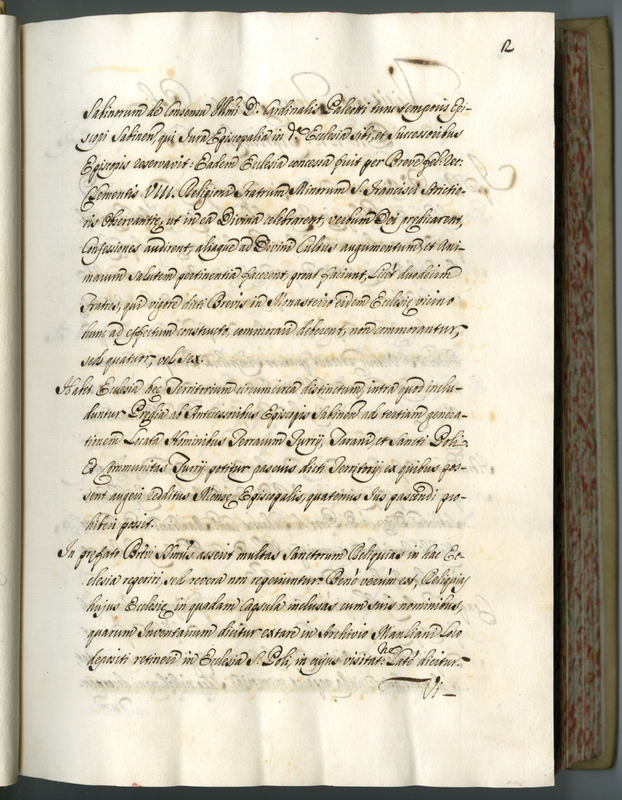 12
Sabinorum de Consensu Illmi D. Cardinalis Paleotti tunc temporis Epi-
scopi Sabinen, qui Jura Episcopalia in dta Ecclesia sibi, et successoribus
Episcopis reservavit: Eadem Ecclesia concessa fuit per Breve fel: rec:
Clementis VIII. Religioni Fratrum Minorum S. Francisci strictio-
ris observantię, ut in ea Divina celebrarent, verbum Dei predicarent,
Confessiones audirent, aliaque ad Divini Cultus augumentum, et Ani-
marum salutem pertinentia facerent, prout faciunt, Licet duodecim
Fratres, qui vigore dicti Brevis in Monasterio eidem Ecclesię vicino
hunc ad effectum constructo, commorari deberent, non commorantur,
sed quatuor, vel sex.
Habet Ecclesia hęc Territorium circumcirca distinctum, intra quod inclu-
duntur Prędia ab Antecessoribus Episcopis Sabinen ad tertiam genera-
tionem Locata Hominibus Terrarum Turrij, Tarani, et Sancti Poli.
Et Communitas Turrij potitur pascuis dicti Territorij, ex quibus pos-
sent augeri redditus Mensę Episcopalis, quatenus Jus pascendi pro-
hiberi possit.
In prefato Brevi Smus asserit multas Sanctorum Reliquias in hac Ec-
clesia reperiri, sed revera non reperiuntur. Bene verum est, Reliquias
hujus Ecclesię in quadam Capsula inclusas cum suis nominibus,
quarum Inventarium dicitur extare in Archivio Manliani Loco
depositi retineri in Ecclesia S. Poli, in cujus visitatne Late dicetur.
Vi-